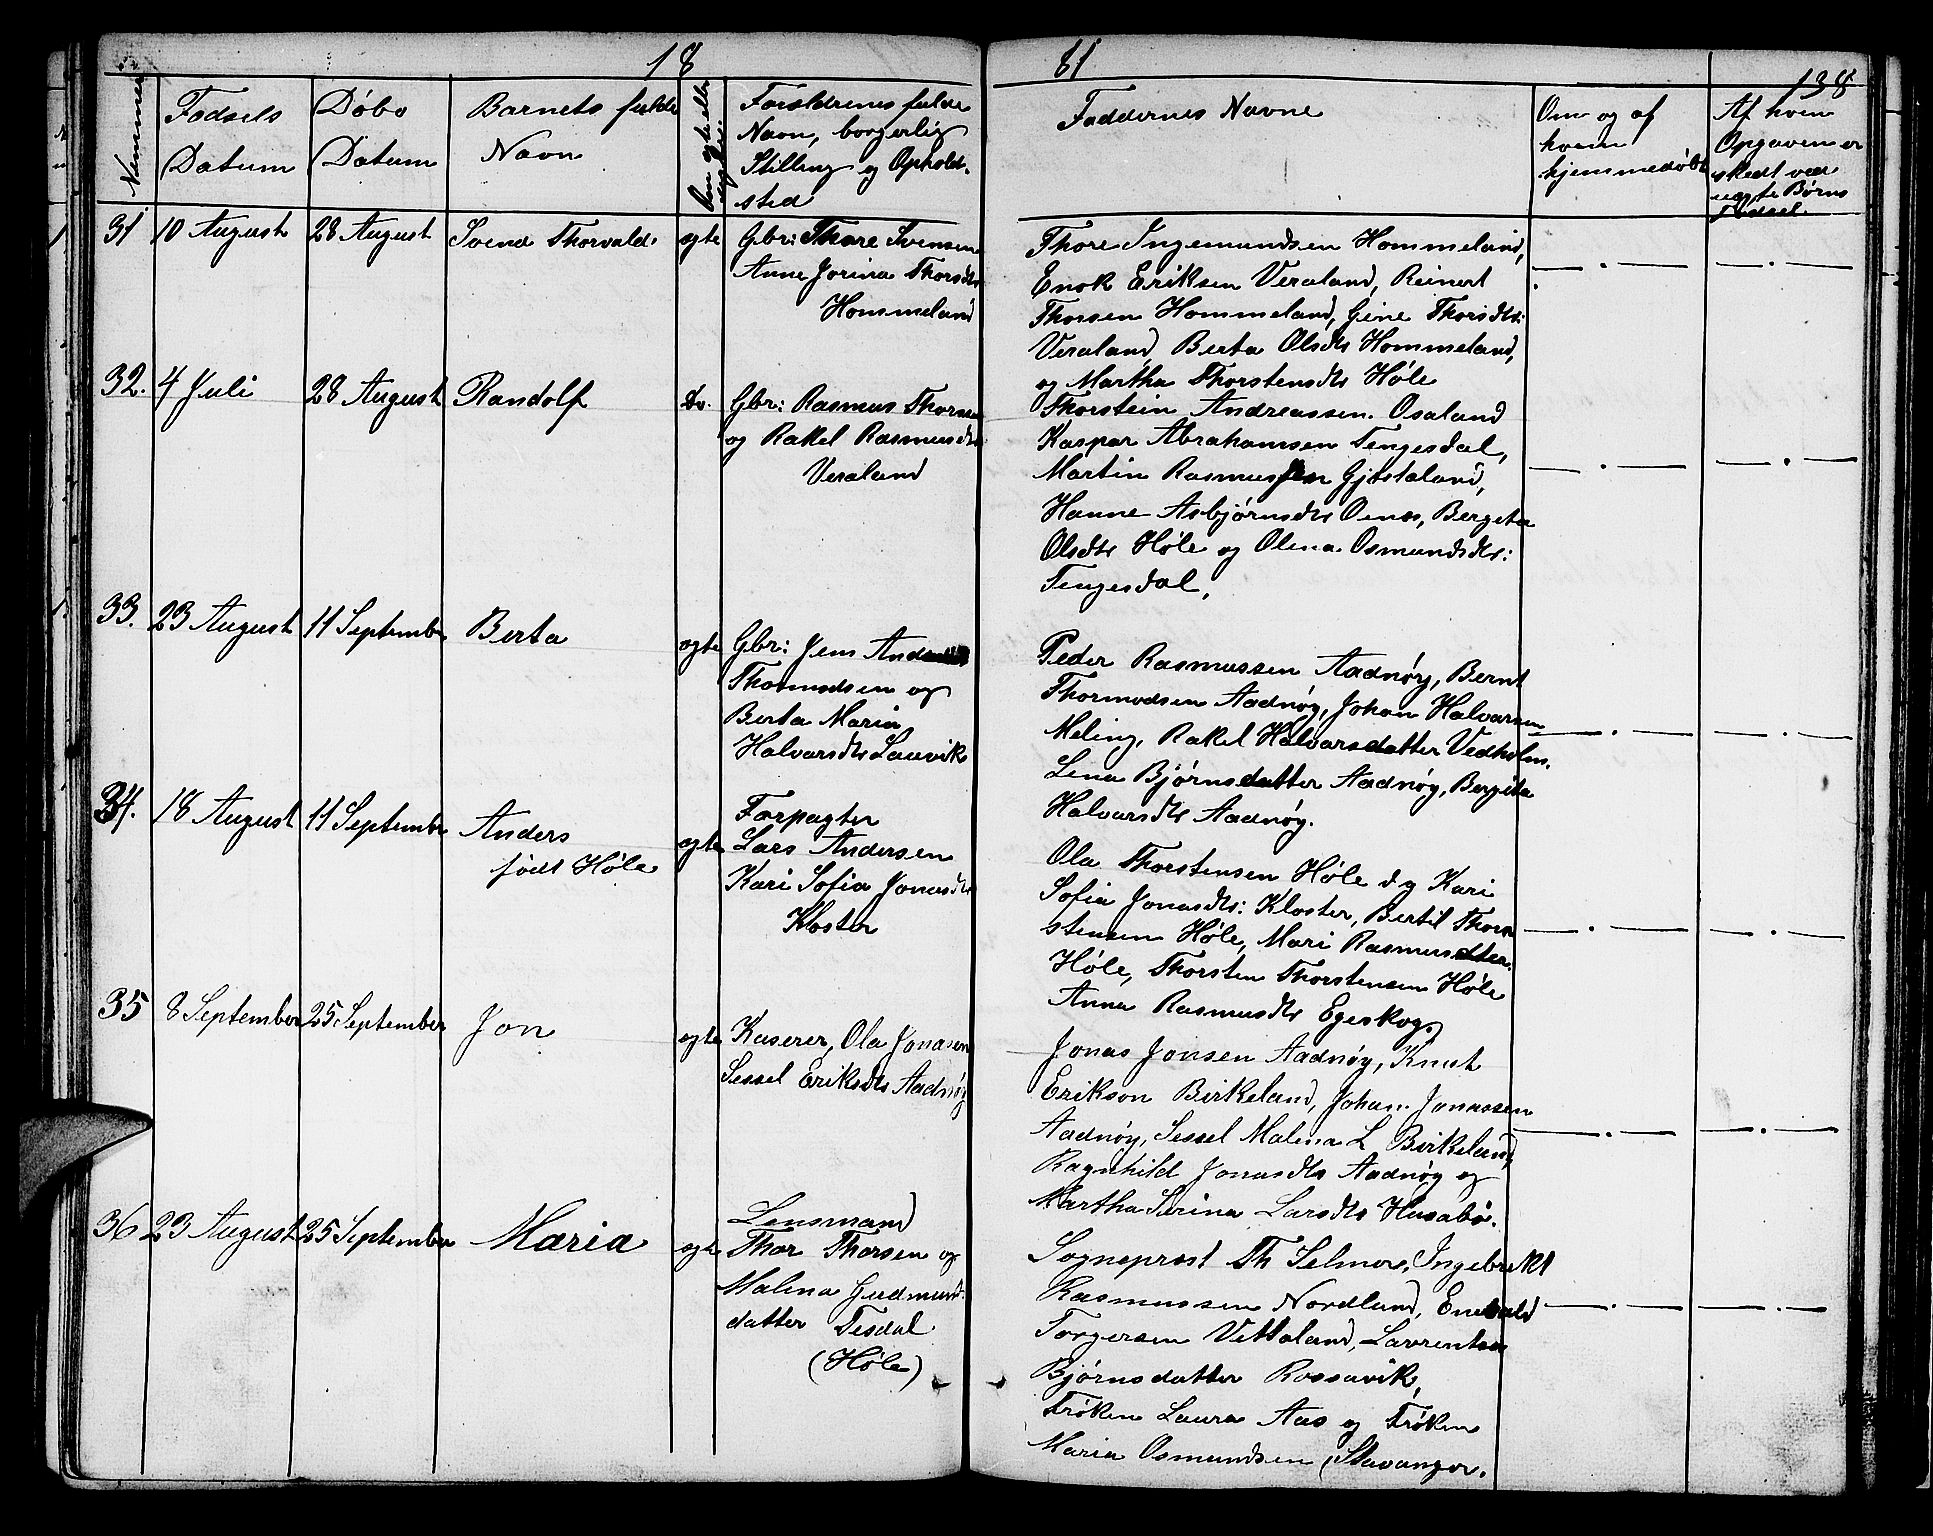 18 81
138
Nummer
Fødsels Datum
Døbe Datum
Barnets fulde Navn
Om ægte eller uægte
Forældrenes fulde
Navn, borgerlig
Stilling og Opholds-
sted
Faddernes Navne
Om og af
hvem
hjemmedøbt
Af hvem
Opgaven er
skedt ved
uægte Børns
Fødsel.
31 10 August 28 August Svend Thorvald. ægte
Gbr: Thore Svensen
Anne Jorina Thorsdtr
Hommeland
Thore Ingemundsen Hommeland,
Enok Eriksen Veraland, Reinert
Thorsen Hommeland, Gine Thorsdtr:
Veraland, Berta Olsdtr Hommeland,
og Martha Thorstensdtr Høle
32. 4 Juli 28 August Randolf Do.
Gbr: Rasmus Thorsen
og Rakel Rasmusdtr
Veraland
Thorstein Andreassen. Osaland
Kaspar Abrahamsen Tengesdal,
Martin Rasmussen Gjøstaland,
Hanne Asbjørnsdtr Oenes, Bergita
Olsdtr Høle og Olena Osmundsdtr:
Tengesdal,
33. 23 August 11 September Berta ægte
Gbr: Jens
Thormodsen og
Berta Maria
Halvarsdtr Lauvik
Peder Rasmussen Aadnøy, Bernt
Thormodsen Aadnøy, Johan Halvarsen
Meling, Rakel Halvarsdatter Vedholm.
Lena Bjørnsdatter Aadnøy, Bergita
Halvarsdtr Aadnøy.
34. 18 August 11 September Anders
født Høle
ægte
Forpagter
Lars Andersen
Kari Sofia Jonasdtr
Kloster
Ola Thorstensen Høle og Kari
Sofia Jonasdtr: Kloster, Bertil Thor
stensen Høle, Mari Rasmusdtter.
Høle, Thorsten Thorstensen Høle
Anna Rasmusdtr Egeskog,
35 8 September 25 September Jon ægte
Kaserer, Ola Jonasen
Sessel Eriksdtr Aadnøy
Jonas Jonsen Aadnøy, Knut
Erikson Birkeland, Johan Jonassen
Aadnøy, Sessel Malena L Birkeland,
Ragnhild Jonasdtr Aadnøy og
Martha Serina Larsdtr Husabø.
36 23 August 25 September Maria ægte
Lensmand
Thor Thorsen og
Malena Gudmund:
datter Tesdal
(Høle)
Sogneprest Th Selmer, Ingebrekt
Rasmussen Nordland, Enevald
Torgersen Vittaland, Laurentse
Bjørnsdatter Rossavik,
Frøken Laura Aas og Frøken
Maria Osmundsen (Stavanger.